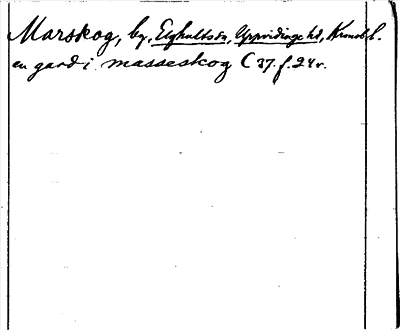 Marskog, by, Elghults sn, Uppvidinge hd, Kronob l.
en gard i masseskog C 37. f. 24 v.